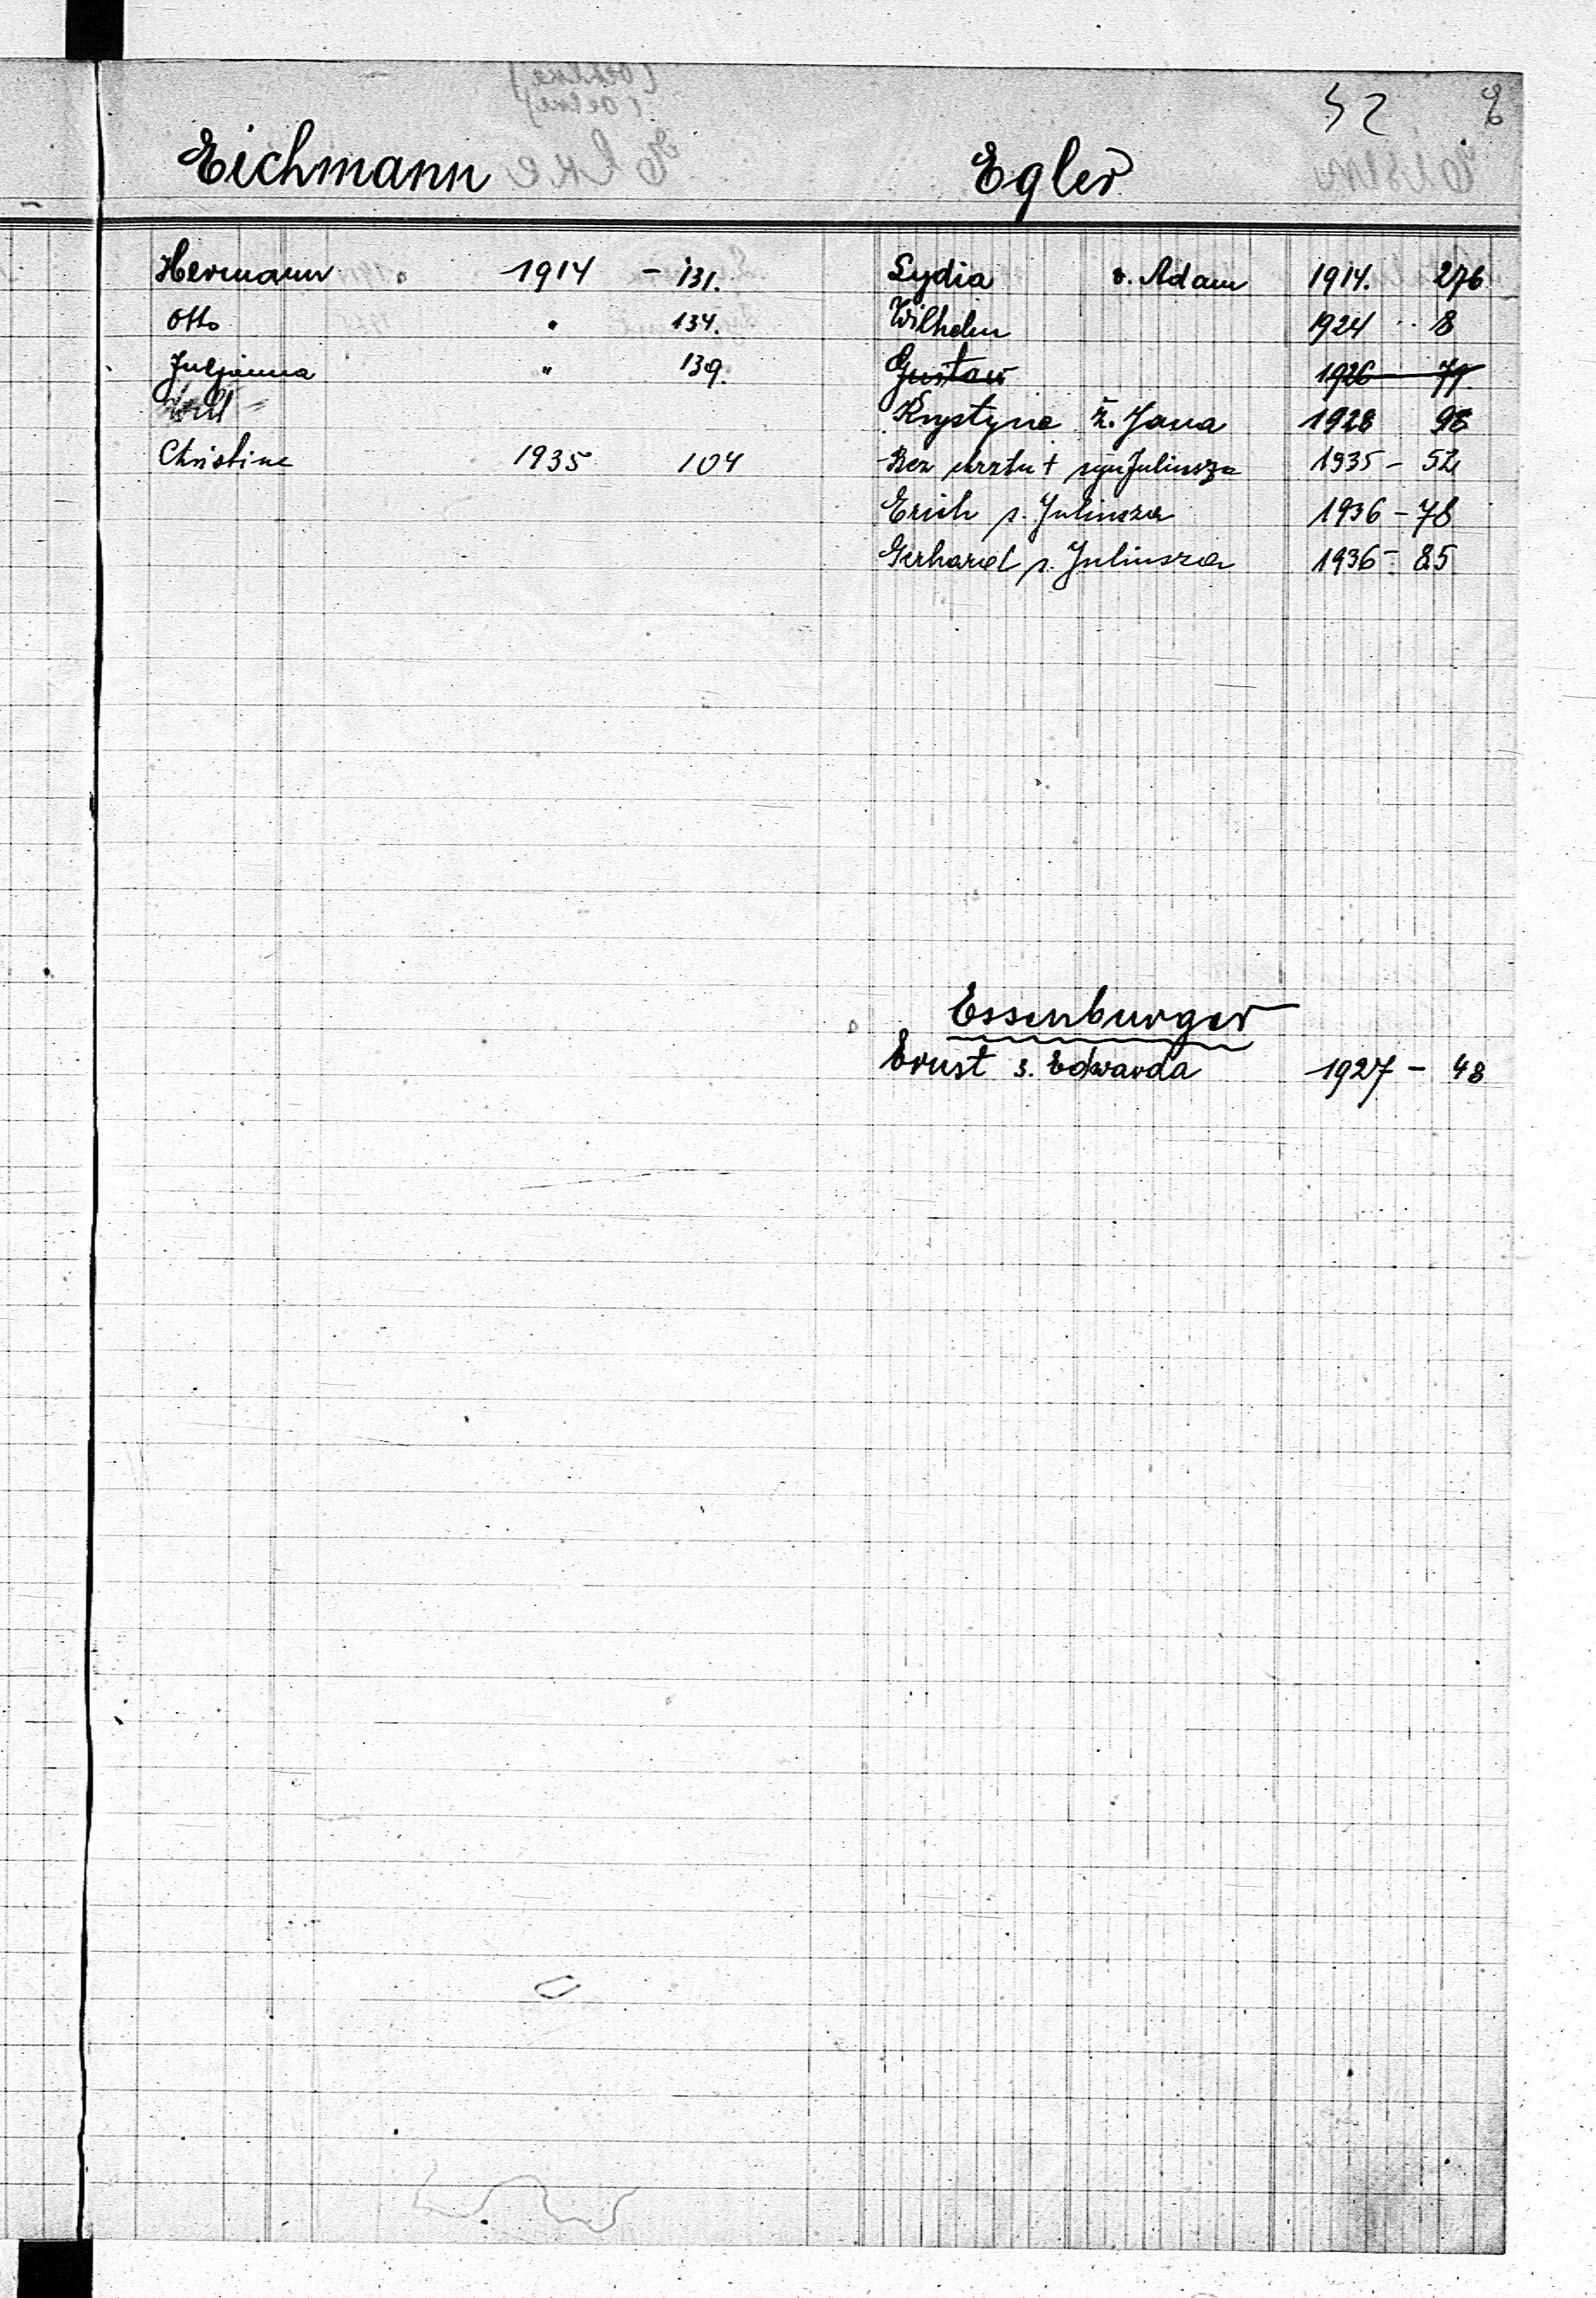 52
Eichmann
Hermann 1914 - 131.
Otto " 134.
Juljanna " 139.
Christine 1935 104
Egler
Lydia v. Adam 1914. 276
Wilhelm 1924 8
Gustaw 1926 79
Krystyna ż. Jana 1928 98
Bez chrztu + syn Juliusza 1935 - 52
Erich s. Juliusza 1936 - 78
Gerhard s. Juliusza 1936 - 85
Essenburger
Ernst s. Edwarda 1927 - 48